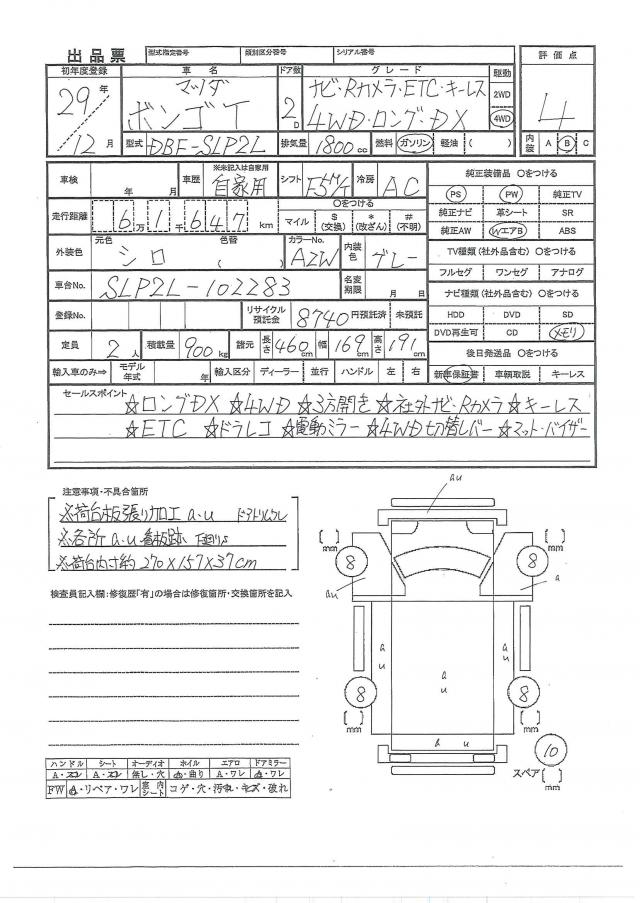 出品票 型式指定番号 類別区分番号 シリアル番号 評価点
初年度登録 車名 ドア数 グレード 駆動
29年 マツダ 2D ナビ・Rカメラ・ETC・キーレス 2WD 4
12月 ボンゴT 4WD・ロング・DX 4WD
型式 DBF-SLP2L 排気量 1800cc 燃料 ガソリン・軽油・( ) 内装 A B C
車検 年 月 車歴 ※未記入は自家用 自家用 シフト F5 冷房 AC 純正装備品 〇をつける
PS PW 純正TV
走行距離 6万1千647km 〇をつける マイル $(交換) *(改ざん) #(不明) 純正ナビ 革シート SR
純正AW WエアB ABS
外装色 元色 シロ 色替 ( ) カラーNo. A2W 内装色 グレー TV種類(社外品含む) 〇をつける
フルセグ ワンセグ アナログ
車台No. SLP2L-102283 名変期限 月 日 ナビ種類(社外品含む) 〇をつける
登録No. リサイクル預託金 8740円預託済 未預託 HDD DVD SD
DVD再生可 CD メモリ
定員 2人 積載量 900kg 諸元 長さ460cm 幅169cm 高さ191cm 後日発送品 〇をつける
輸入車のみ⇒ モデル年式 年 輸入区分 ディーラー 並行 ハンドル 左 右 新車保証書 車輌取説 キーレス
セールスポイント
☆ロングDX ☆4WD ☆3方開き ☆社外ナビ・Rカメラ ☆キーレス
☆ETC ☆ドラレコ ☆電動ミラー ☆4WD切替レバー ☆マット・バイザー
注意事項・不具合箇所
※荷台板張り加工a.u ドアトリムウレ
※各所a.u 看板跡 下回りS
※荷台内寸約270×157×37cm
検査員記入欄:修復歴「有」の場合は修復箇所・交換箇所を記入
au
[ ]mm 8 8 [ ]mm
au a
a u a u a u
8 8
[ ]mm [ ]mm
a u
スペア 10
[ ]mm
ハンドル シート オーディオ ホイル エアロ ドアミラー
A・スレ A・スレ 無し・穴 a・曲り A・ワレ A・ワレ
FW A・リペア・ワレ 室内シート コゲ・穴・汚れ・キズ・破れ